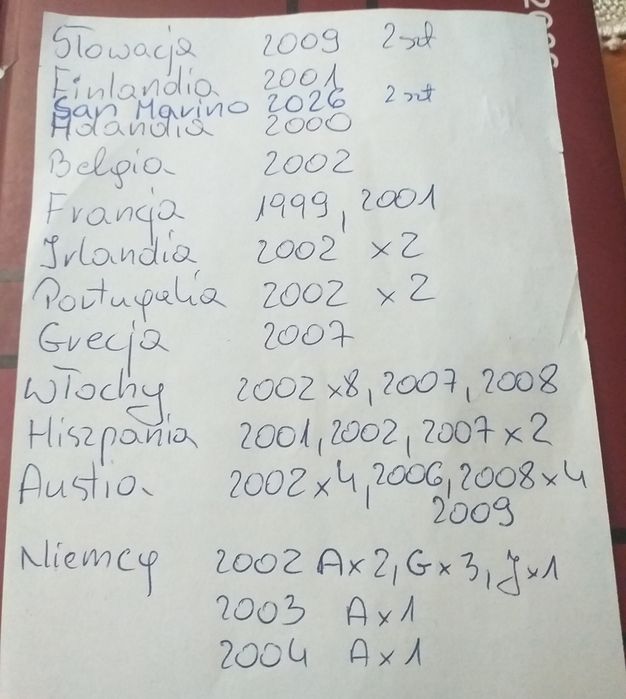 Słowacja 2009 2 szt
Finlandia 2001
San Marino 2026 2 szt
Holandia 2000
Belgia 2002
Francja 1999, 2001
Irlandia 2002 x 2
Portugalia 2002 x 2
Grecja 2007
Włochy 2002 x 8, 2007, 2008
Hiszpania 2001, 2002, 2007 x 2
Austia 2002 x 4, 2006, 2008 x 4
2009
Niemcy 2002 A x 2, G x 3, J x 1
2003 A x 1
2004 A x 1